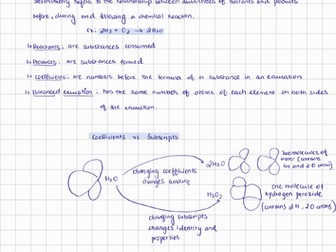 Stoichiometry refers to the relationship between quantities of reactants and products
before, during, and following a chemical reaction.
ex: 2H₂ + O₂ → 2H₂O
Reactants: are substances consumed
Products: are substances formed
Coefficients: are numbers before the formula of a substance in an equation.
Balanced equation: has the same number of atoms of each element on both sides
of the equation.
Coefficients vs Subscripts
H₂O
changing coefficients
changes amount
2H₂O
Two molecules of
water (contains
4H and 2O atoms)
changing subscripts
changes identity and
properties
H₂O₂
One molecule of
hydrogen peroxide
(contains 2H, 2O atoms)